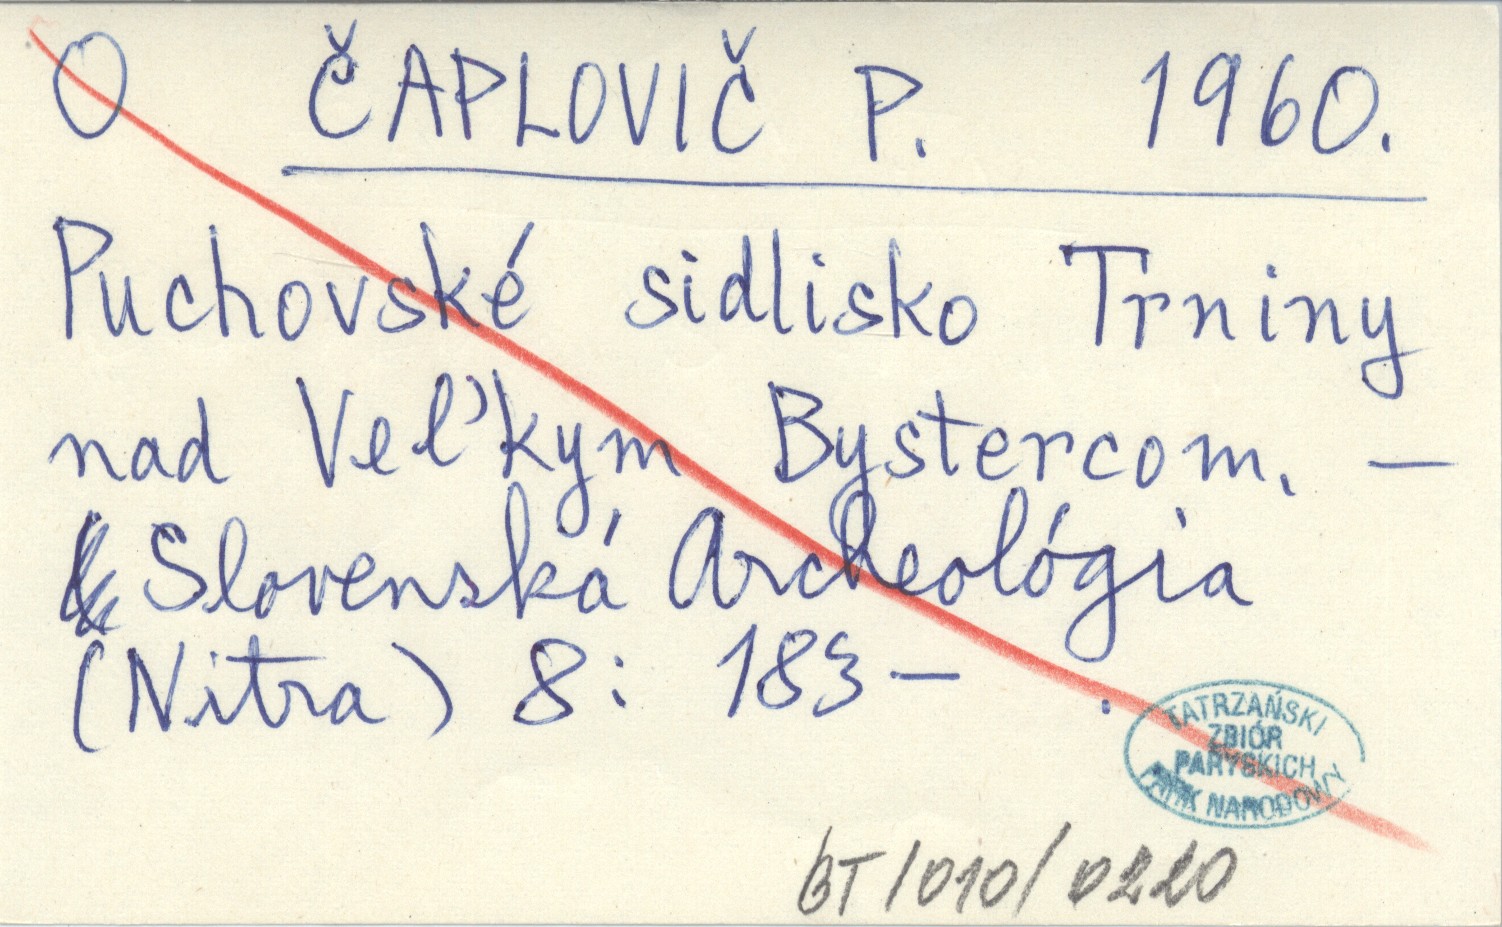 O ČAPLOVIČ P. 1960.
Puchovské sidlisko Trniny
nad Veľkym Bystercom. —
Slovenská Archeológia
(Nitra) 8: 183— .
TATRZAŃSKI
ZBIÓR
PARYSKICH
PARK NARODOWY
BT/010/0220